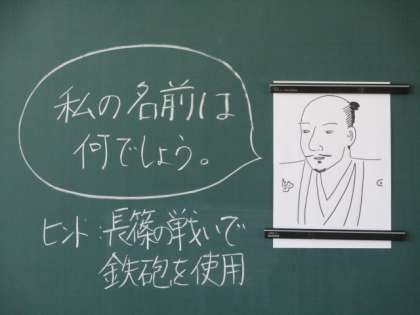 私の名前は
何でしょう。
ヒント：長篠の戦いで
鉄砲を使用